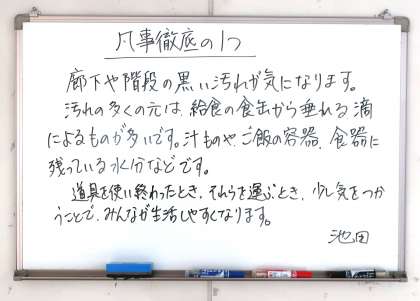 凡事徹底の1つ
廊下や階段の黒い汚れが気になります。
汚れの多くの元は、給食の食缶から垂れる滴
によるものが多いです。汁ものや、ご飯の容器、食器に
残っている水分などです。
道具を使い終わったとき、それらを運ぶとき、少し気をつか
うことで、みんなが生活しやすくなります。
池田